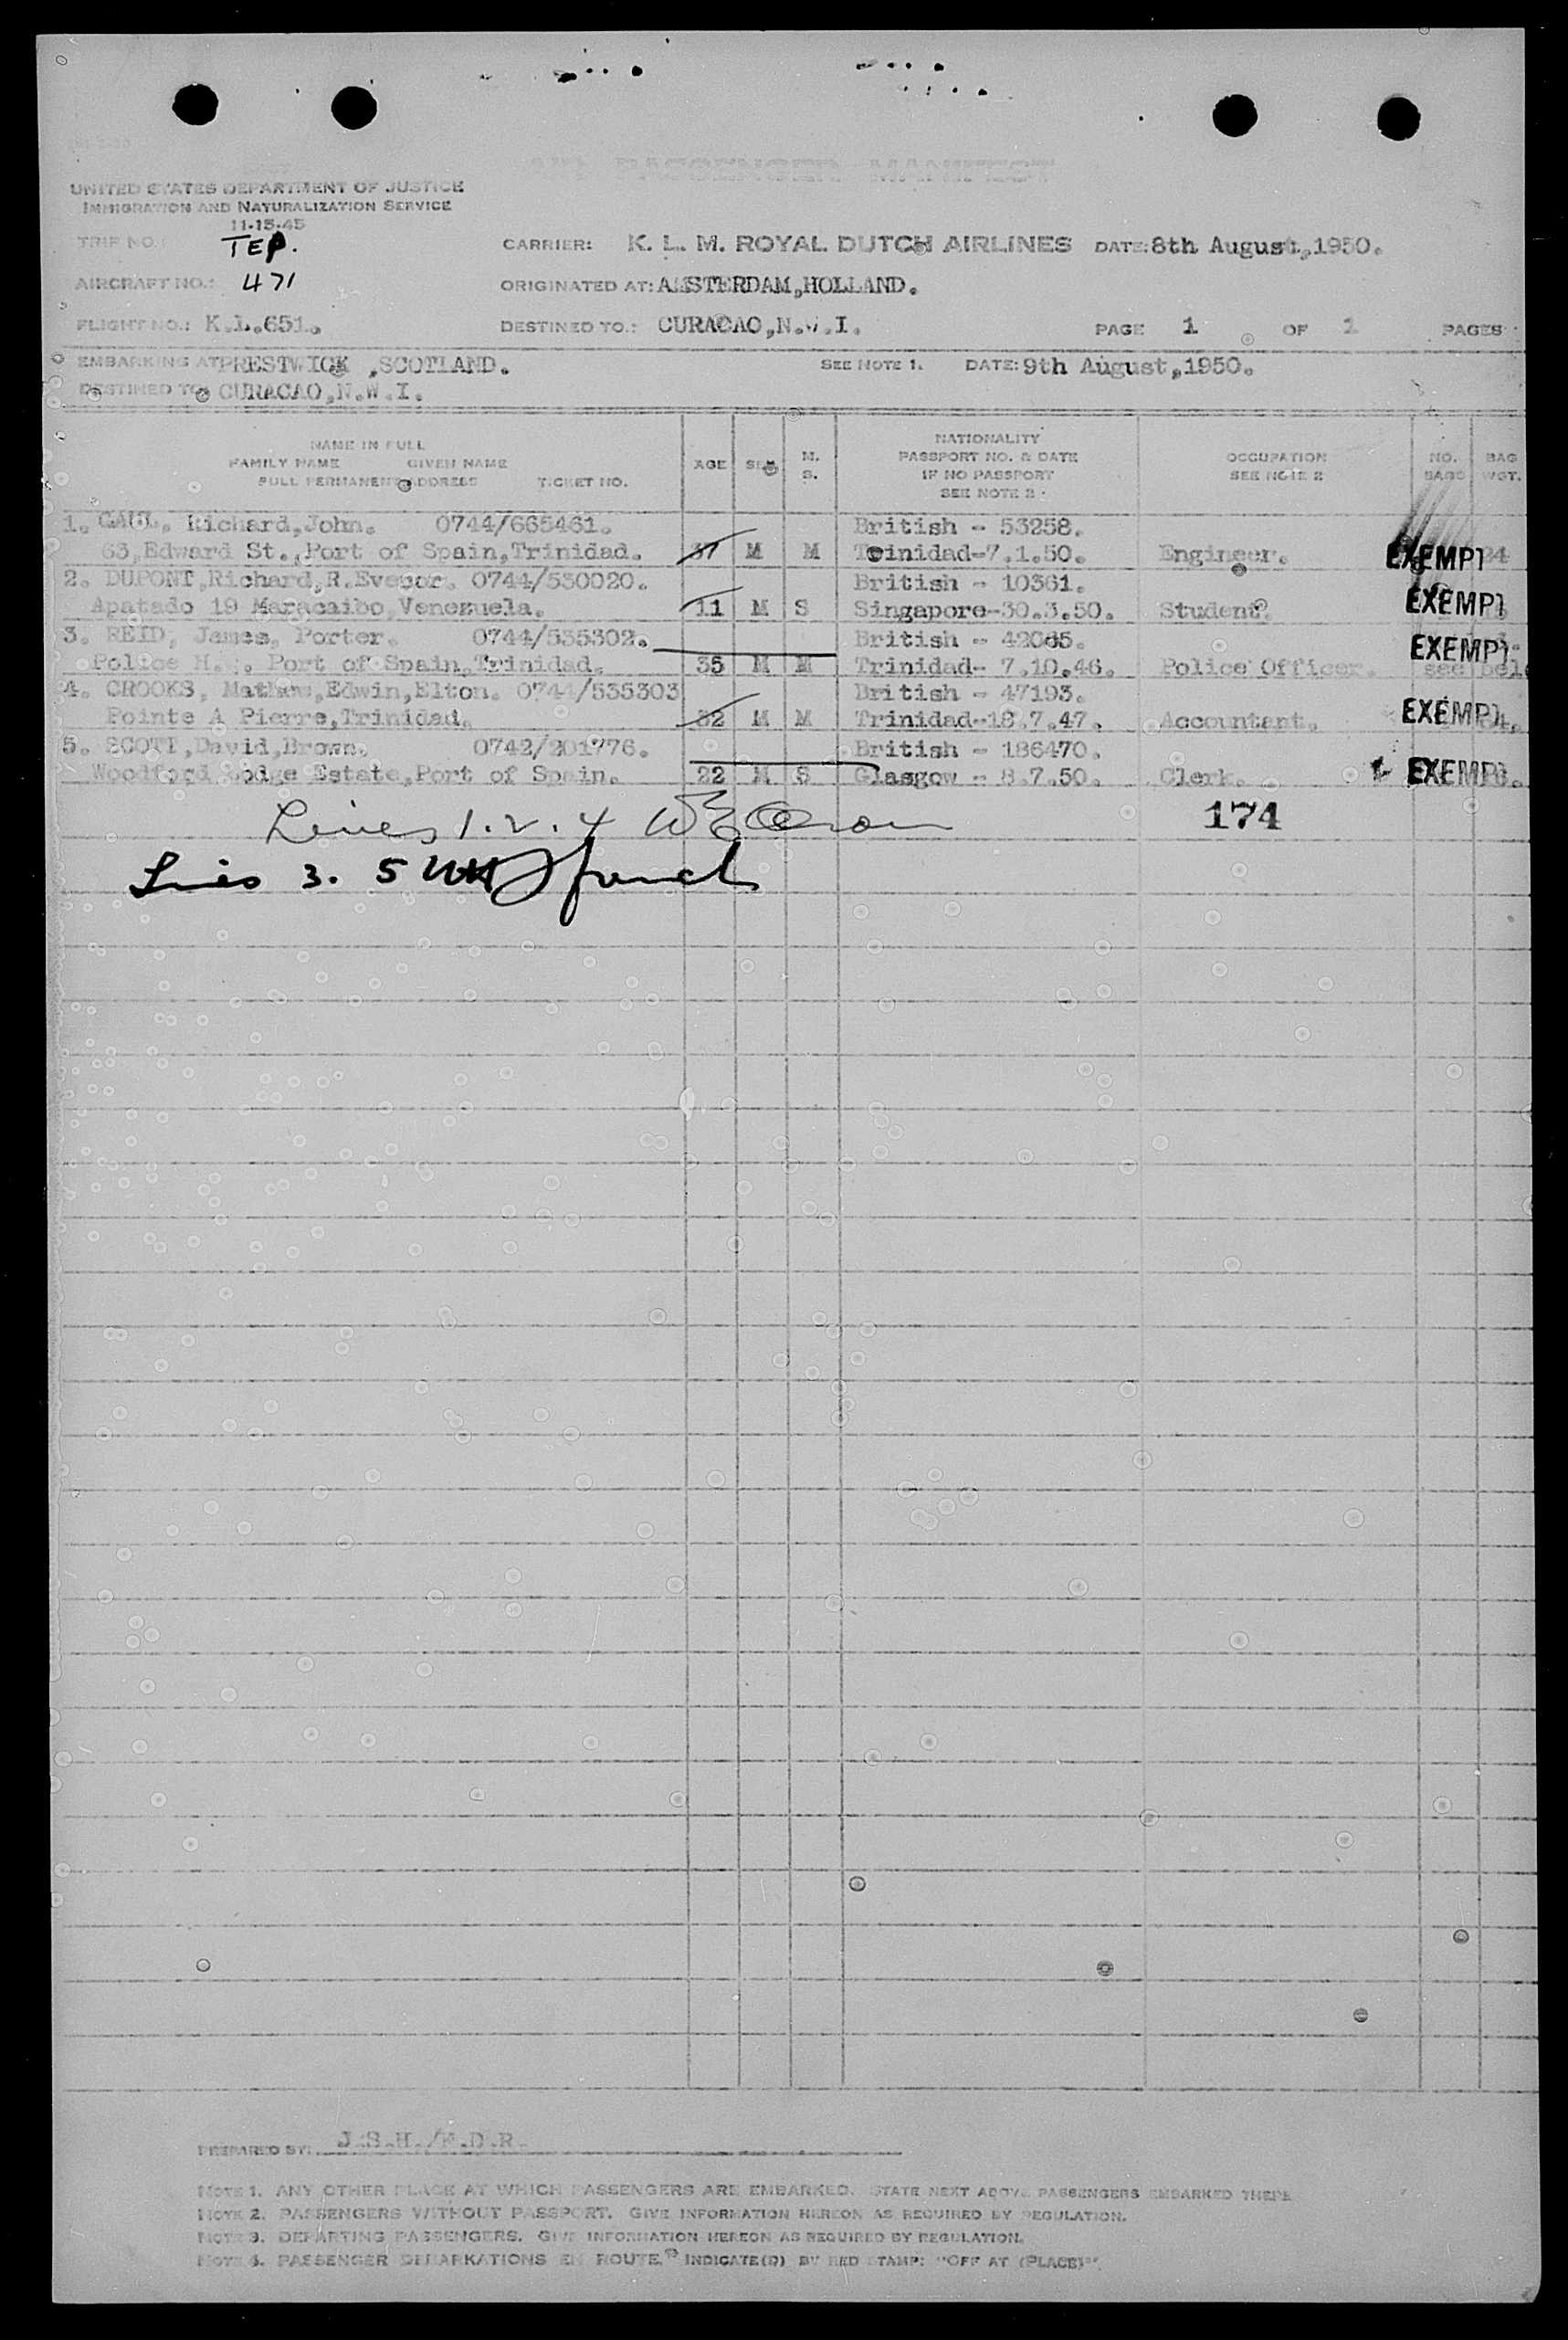 UNITED STATES DEPARTMENT OF JUSTICE
IMMIGRATION AND NATURALIZATION SERVICE
11-15-45
TRIP NO.: TEP.
CARRIER: K. L. M. ROYAL DUTCH AIRLINES DATE: 8th August, 1950.
AIRCRAFT NO.: 471
ORIGINATED AT: AMSTERDAM, HOLLAND.
FLIGHT NO.: K.L.651.
DESTINED TO.: CURACAO, N.W.I. PAGE 1 OF 1 PAGES
EMBARKING AT PRESTWICK, SCOTLAND. SEE NOTE 1. DATE: 9th August, 1950.
DESTINED TO CURACAO, N.W.I.
NAME IN FULL
FAMILY NAME GIVEN NAME
FULL PERMANENT ADDRESS TICKET NO.
AGE SEX M. S.
NATIONALITY
PASSPORT NO. & DATE
IF NO PASSPORT
SEE NOTE 2
OCCUPATION
SEE NOTE 2
NO. BAGS
BAG WGT.
1. GAUL. Richard, John. 0744/665461. British - 53258.
63, Edward St., Port of Spain, Trinidad. 37 M M Trinidad-7.1.50. Engineer. EXEMPT 24
2. DUPONT, Richard, R. 0744/530020. British - 10361.
Apatado 19 Maracaibo, Venezuela. 11 M S Singapore-30.3.50. Student. EXEMPT
3. REID, James, Porter. 0744/535302. British - 42065.
Police H. Port of Spain, Trinidad. 35 M M Trinidad- 7.10.46. Police Officer. EXEMPT see
4. CROOKS, Mathew, Edwin, Elton. 0744/535303 British - 47193.
Pointe A Pierre, Trinidad. 32 M M Trinidad-18.7.47. Accountant. EXEMPT
5. SCOTT, David, Brown. 0742/201776. British - 186470.
Woodford Lodge Estate, Port of Spain. 22 M S Glasgow - 8.7.50. Clerk. EXEMPT
Lines 1. 2. 4
174
Lines 3. 5
PREPARED BY: J.S.H./F.D.R.
NOTE 1. ANY OTHER PLACE AT WHICH PASSENGERS ARE EMBARKED. STATE NEXT ABOVE PASSENGERS EMBARKED THERE
NOTE 2. PASSENGERS WITHOUT PASSPORT. GIVE INFORMATION HEREON AS REQUIRED BY REGULATION.
NOTE 3. DEPARTING PASSENGERS. GIVE INFORMATION HEREON AS REQUIRED BY REGULATION.
NOTE 4. PASSENGER DEBARKATIONS EN ROUTE. INDICATE(D) BY RED STAMP: "OFF AT (PLACE)".